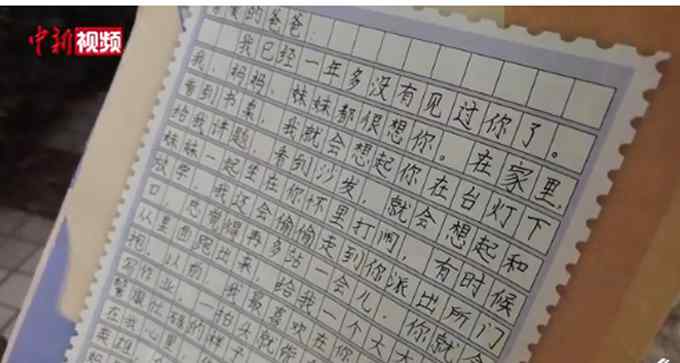 中新视频
的爸爸
我已经一年多没有见过你了。
我、妈妈、妹妹都很想你。在家里,
看到书桌,我就会想起你在台灯下
给我讲题,看到沙发,就会想起和
妹妹一起坐在你怀里打闹,有时候
放学,我还会偷偷走到你派出所门
口,总觉得再多站一会儿,你就会
从里面跑出来,给我一个大大
抱。以前,我最喜欢在你
写作业,一抬头就能
警服忙碌的样子
在我心里,你
英雄。